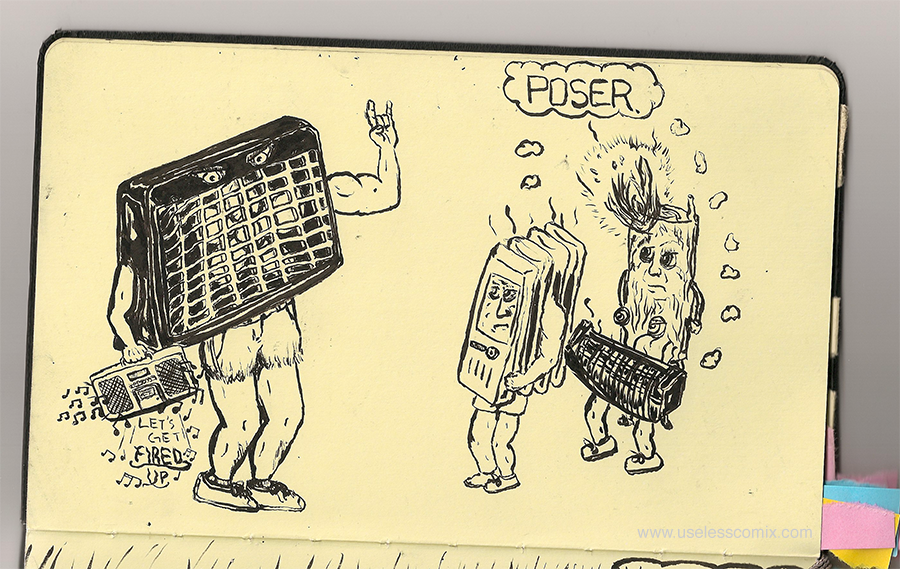 POSER
LET'S
GET
FIRED
UP
www.uselesscomix.com